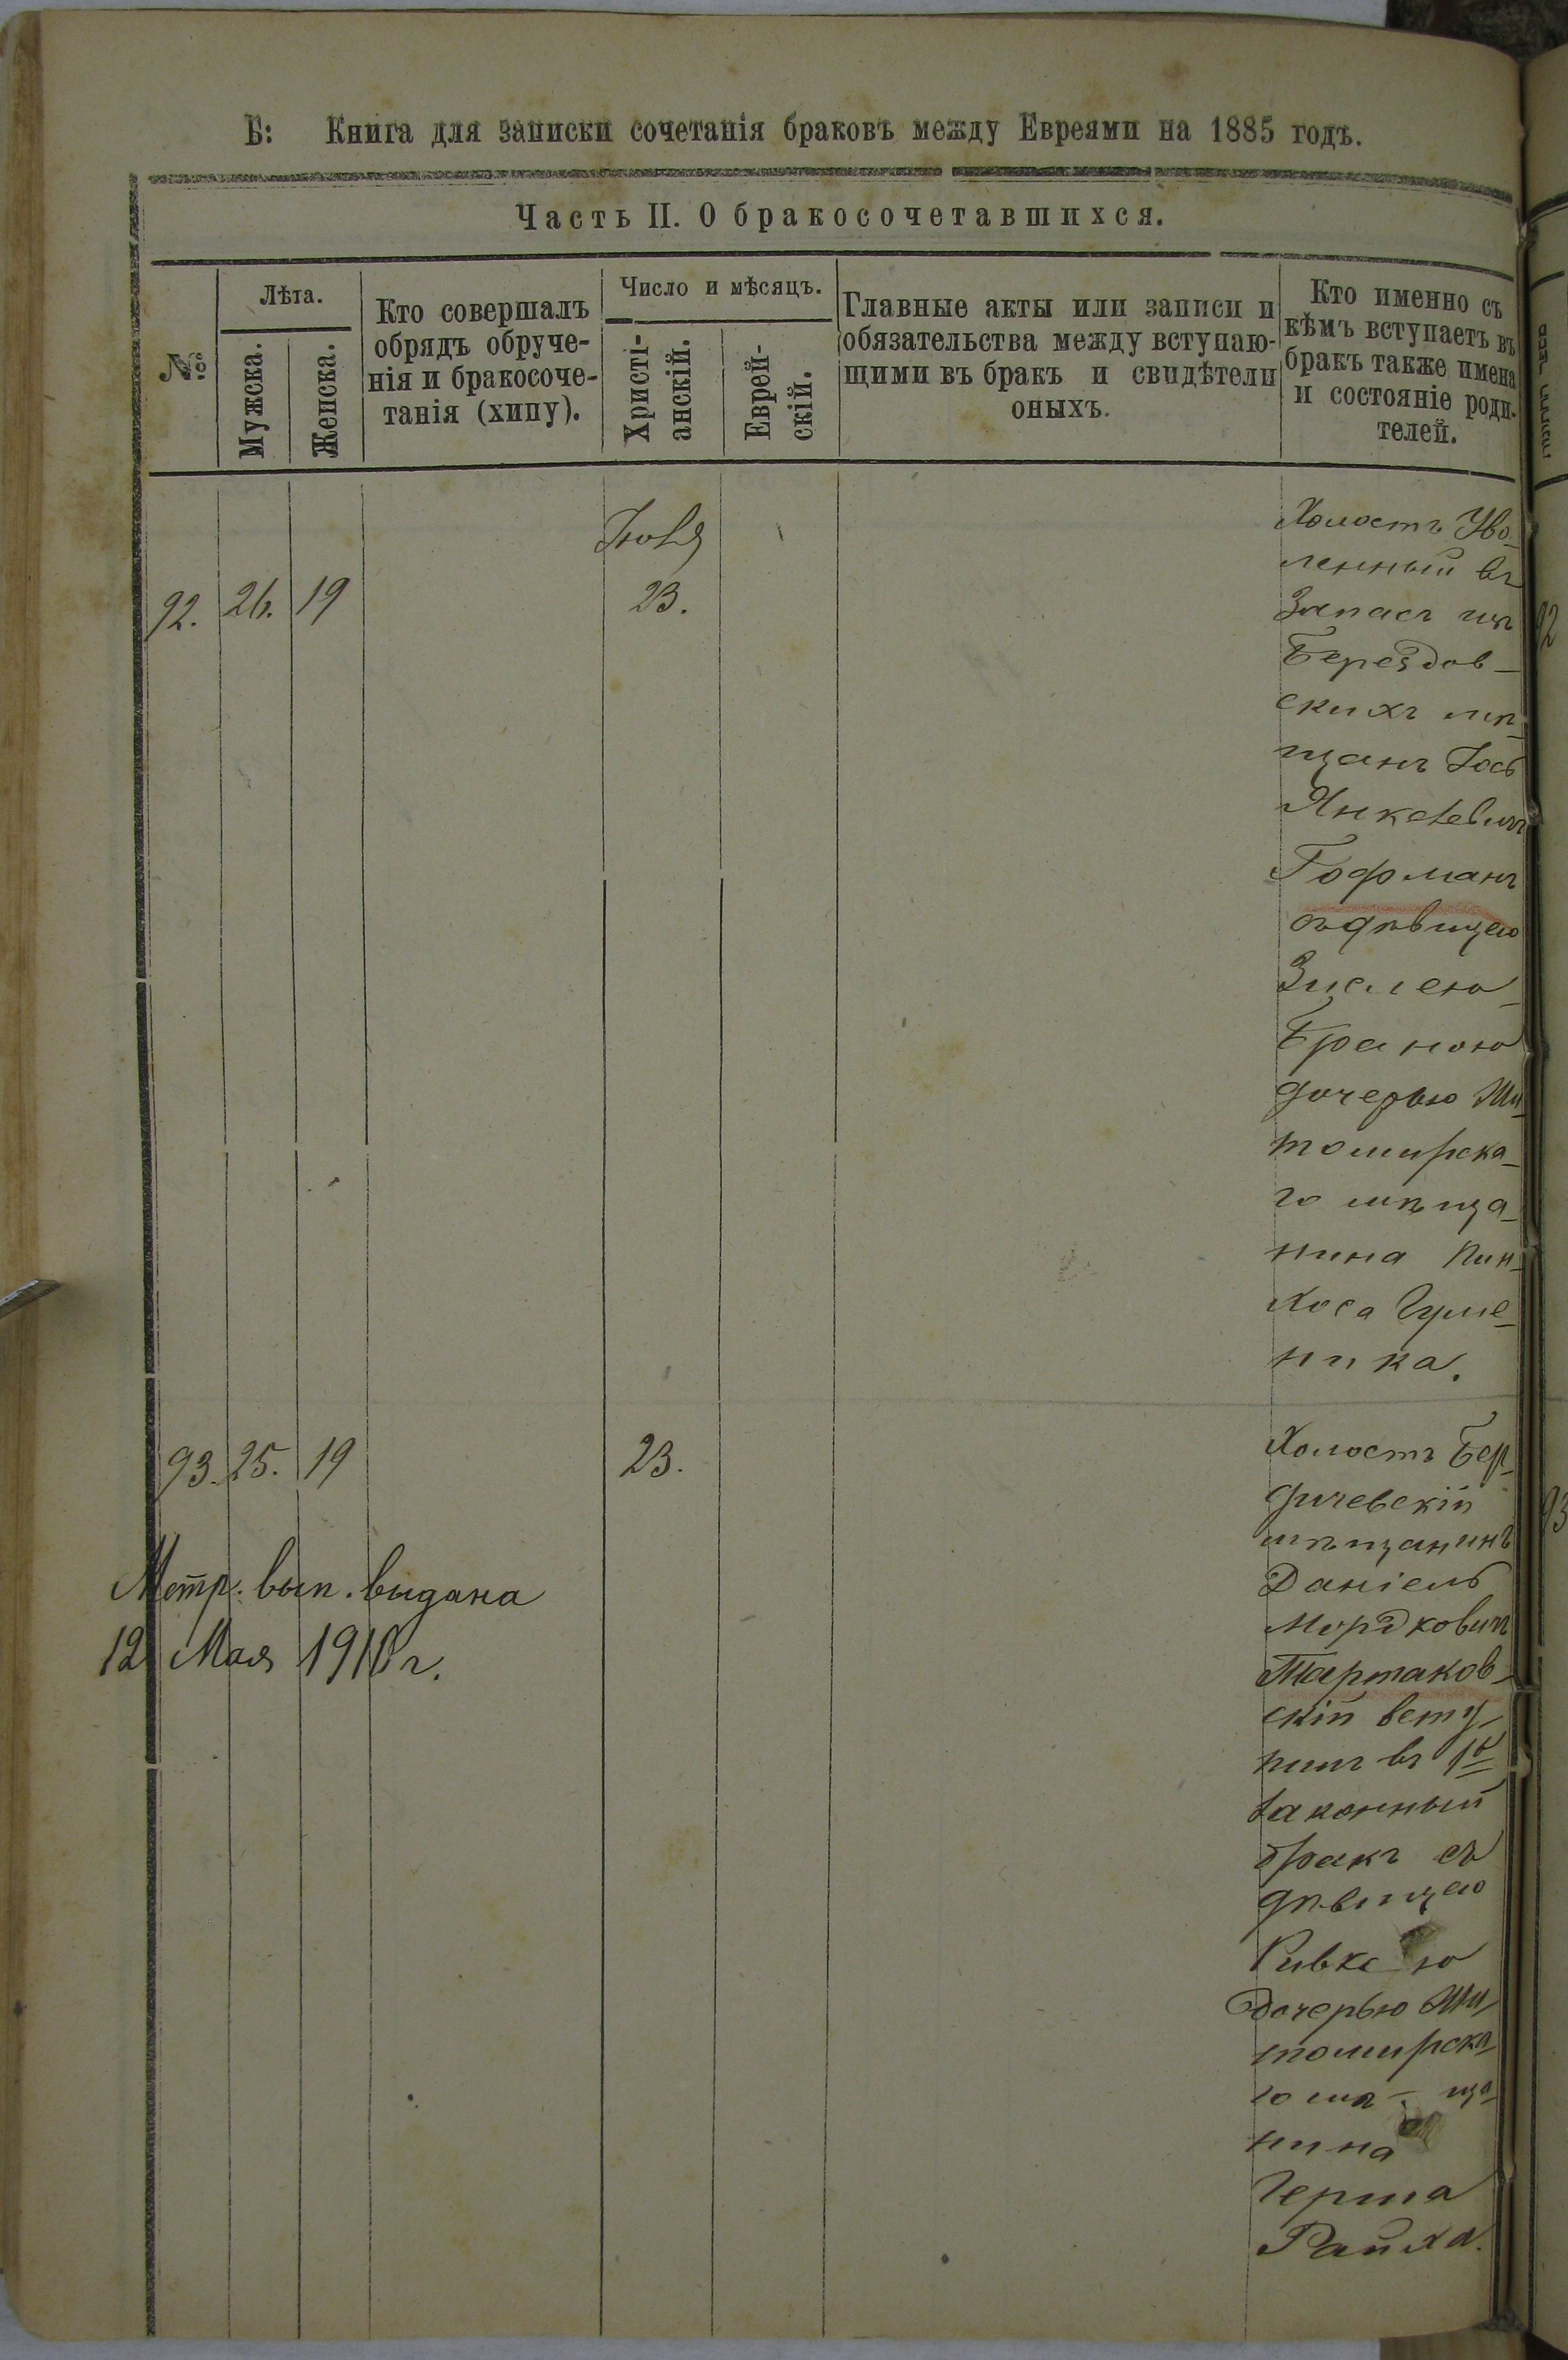 Б: Книга для записки сочетанія браковъ между Евреями на 1885 годъ.
Часть II. О бракосочетавшихся.
№
Лѣта.
Мужска.
Женска.
Кто совершалъ
обрядъ обруче-
нія и бракосоче-
танія (хипу).
Число и мѣсяцъ.
Христі-
анскій.
Еврей-
скій.
Главные акты или записи и
обязательства между вступаю-
щими въ бракъ и свидѣтели
оныхъ.
Кто именно съ
кѣмъ вступаетъ въ
бракъ также имена
и состояніе роди-
телей.
92.
26.
19
23.
Холостъ Уво-
ленный въ
Запасъ изъ
Берездов-
скихъ мѣ-
щанъ Іось
Янкелевичъ
Гофманъ
съ дѣвицею
Зислею-
Браною
дочерью Жи-
томирска-
го мѣща-
нина Пин-
хоса Гуме-
ника.
93.
25.
19
23.
Холостъ Бер-
дичевскій
мѣщанинъ
Даніель
Мордковичъ
Тартаков-
скій всту-
пилъ въ 1й
законный
бракъ съ
дѣвицею
Ривкою
дочерью Жи-
томирска-
го мѣща-
нина
Герша
Райха.
Метр. вып. выдана
12 Мая 1910 г.
92
93